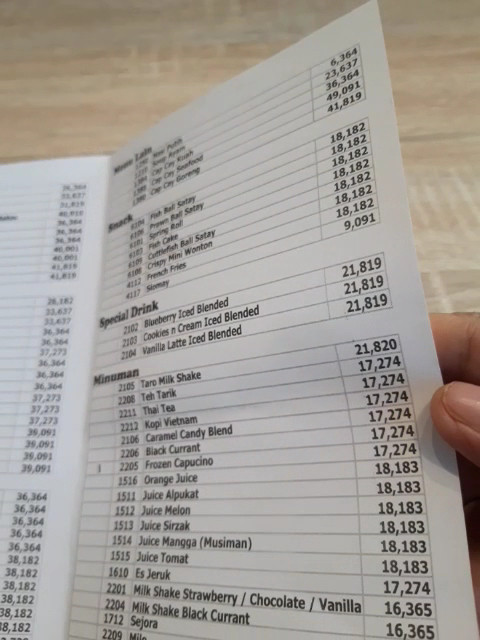 36,364
33,637
31,819
40,910
36,364
36,364
40,001
40,001
41,819
41,819
28,182
33,637
33,637
36,364
37,273
36,364
36,364
37,273
37,273
39,091
39,091
39,091
39,091
36,364
36,364
36,364
36,364
36,364
38,182
38,182
38,182
38,182
6,364
23,637
36,364
49,091
41,819
Menu Lain
Nasi Putih
Cap Cay Kuah
Cap Cay Seafood
Cap Cay Goreng
18,182
18,182
18,182
18,182
18,182
18,182
9,091
Snack
6104 Fish Ball Satay
6106 Prawn Ball Satay
6101 Spring Roll
6103 Fish Cake
6109 Cuttlefish Ball Satay
6108 Crispy Mini Wonton
4112 French Fries
4117 Siomay
Special Drink
2102 Blueberry Iced Blended 21,819
2103 Cookies n Cream Iced Blended 21,819
2104 Vanilla Latte Iced Blended 21,819
Minuman
2105 Taro Milk Shake 21,820
2208 Teh Tarik 17,274
2211 Thai Tea 17,274
2212 Kopi Vietnam 17,274
2106 Caramel Candy Blend 17,274
2206 Black Currant 17,274
2205 Frozen Capucino 17,274
1516 Orange Juice 18,183
1511 Juice Alpukat 18,183
1512 Juice Melon 18,183
1513 Juice Sirzak 18,183
1514 Juice Mangga (Musiman) 18,183
1515 Juice Tomat 18,183
1610 Es Jeruk 17,274
2201 Milk Shake Strawberry / Chocolate / Vanilla 16,365
2204 Milk Shake Black Currant 16,365
1712 Sejora
2209 Milo